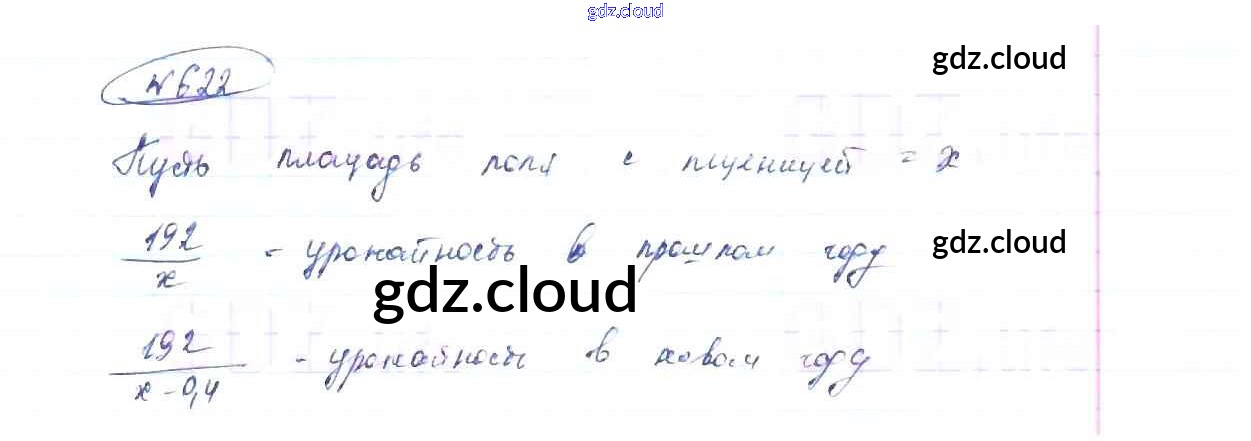 gdz.cloud
№622
gdz.cloud
Пусть площадь поля с пшеницей = x
192/x - урожайность в прошлом году
gdz.cloud
gdz.cloud
192/(x - 0,4) - урожайность в новом году